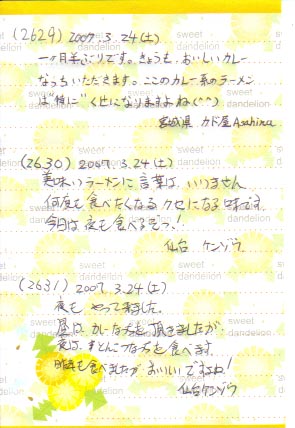 (2629) 2007. 3. 24 (土)
一ヶ月半ぶりです。きょうも、おいしいカレー
なっちいただきます。ここのカレー系のラーメン
は"特に"くせになりますよね(^^)
宮城県 カド屋 Asahina
(2630) 2007. 3. 24 (土)
美味いラーメンに言葉は、いりません
何度も食べたくなるクセになる味です。
今日は夜も食べるぞっ!
仙台 ケンゾウ
(2631) 2007. 3. 24 (土)
夜も やって来ました。
昼は カレーなっちを頂きましたが
夜は、すとんこつなっちを食べます。
昨年も食べましたが おいしいですね!
仙台ケンゾウ
sweet
dandelion